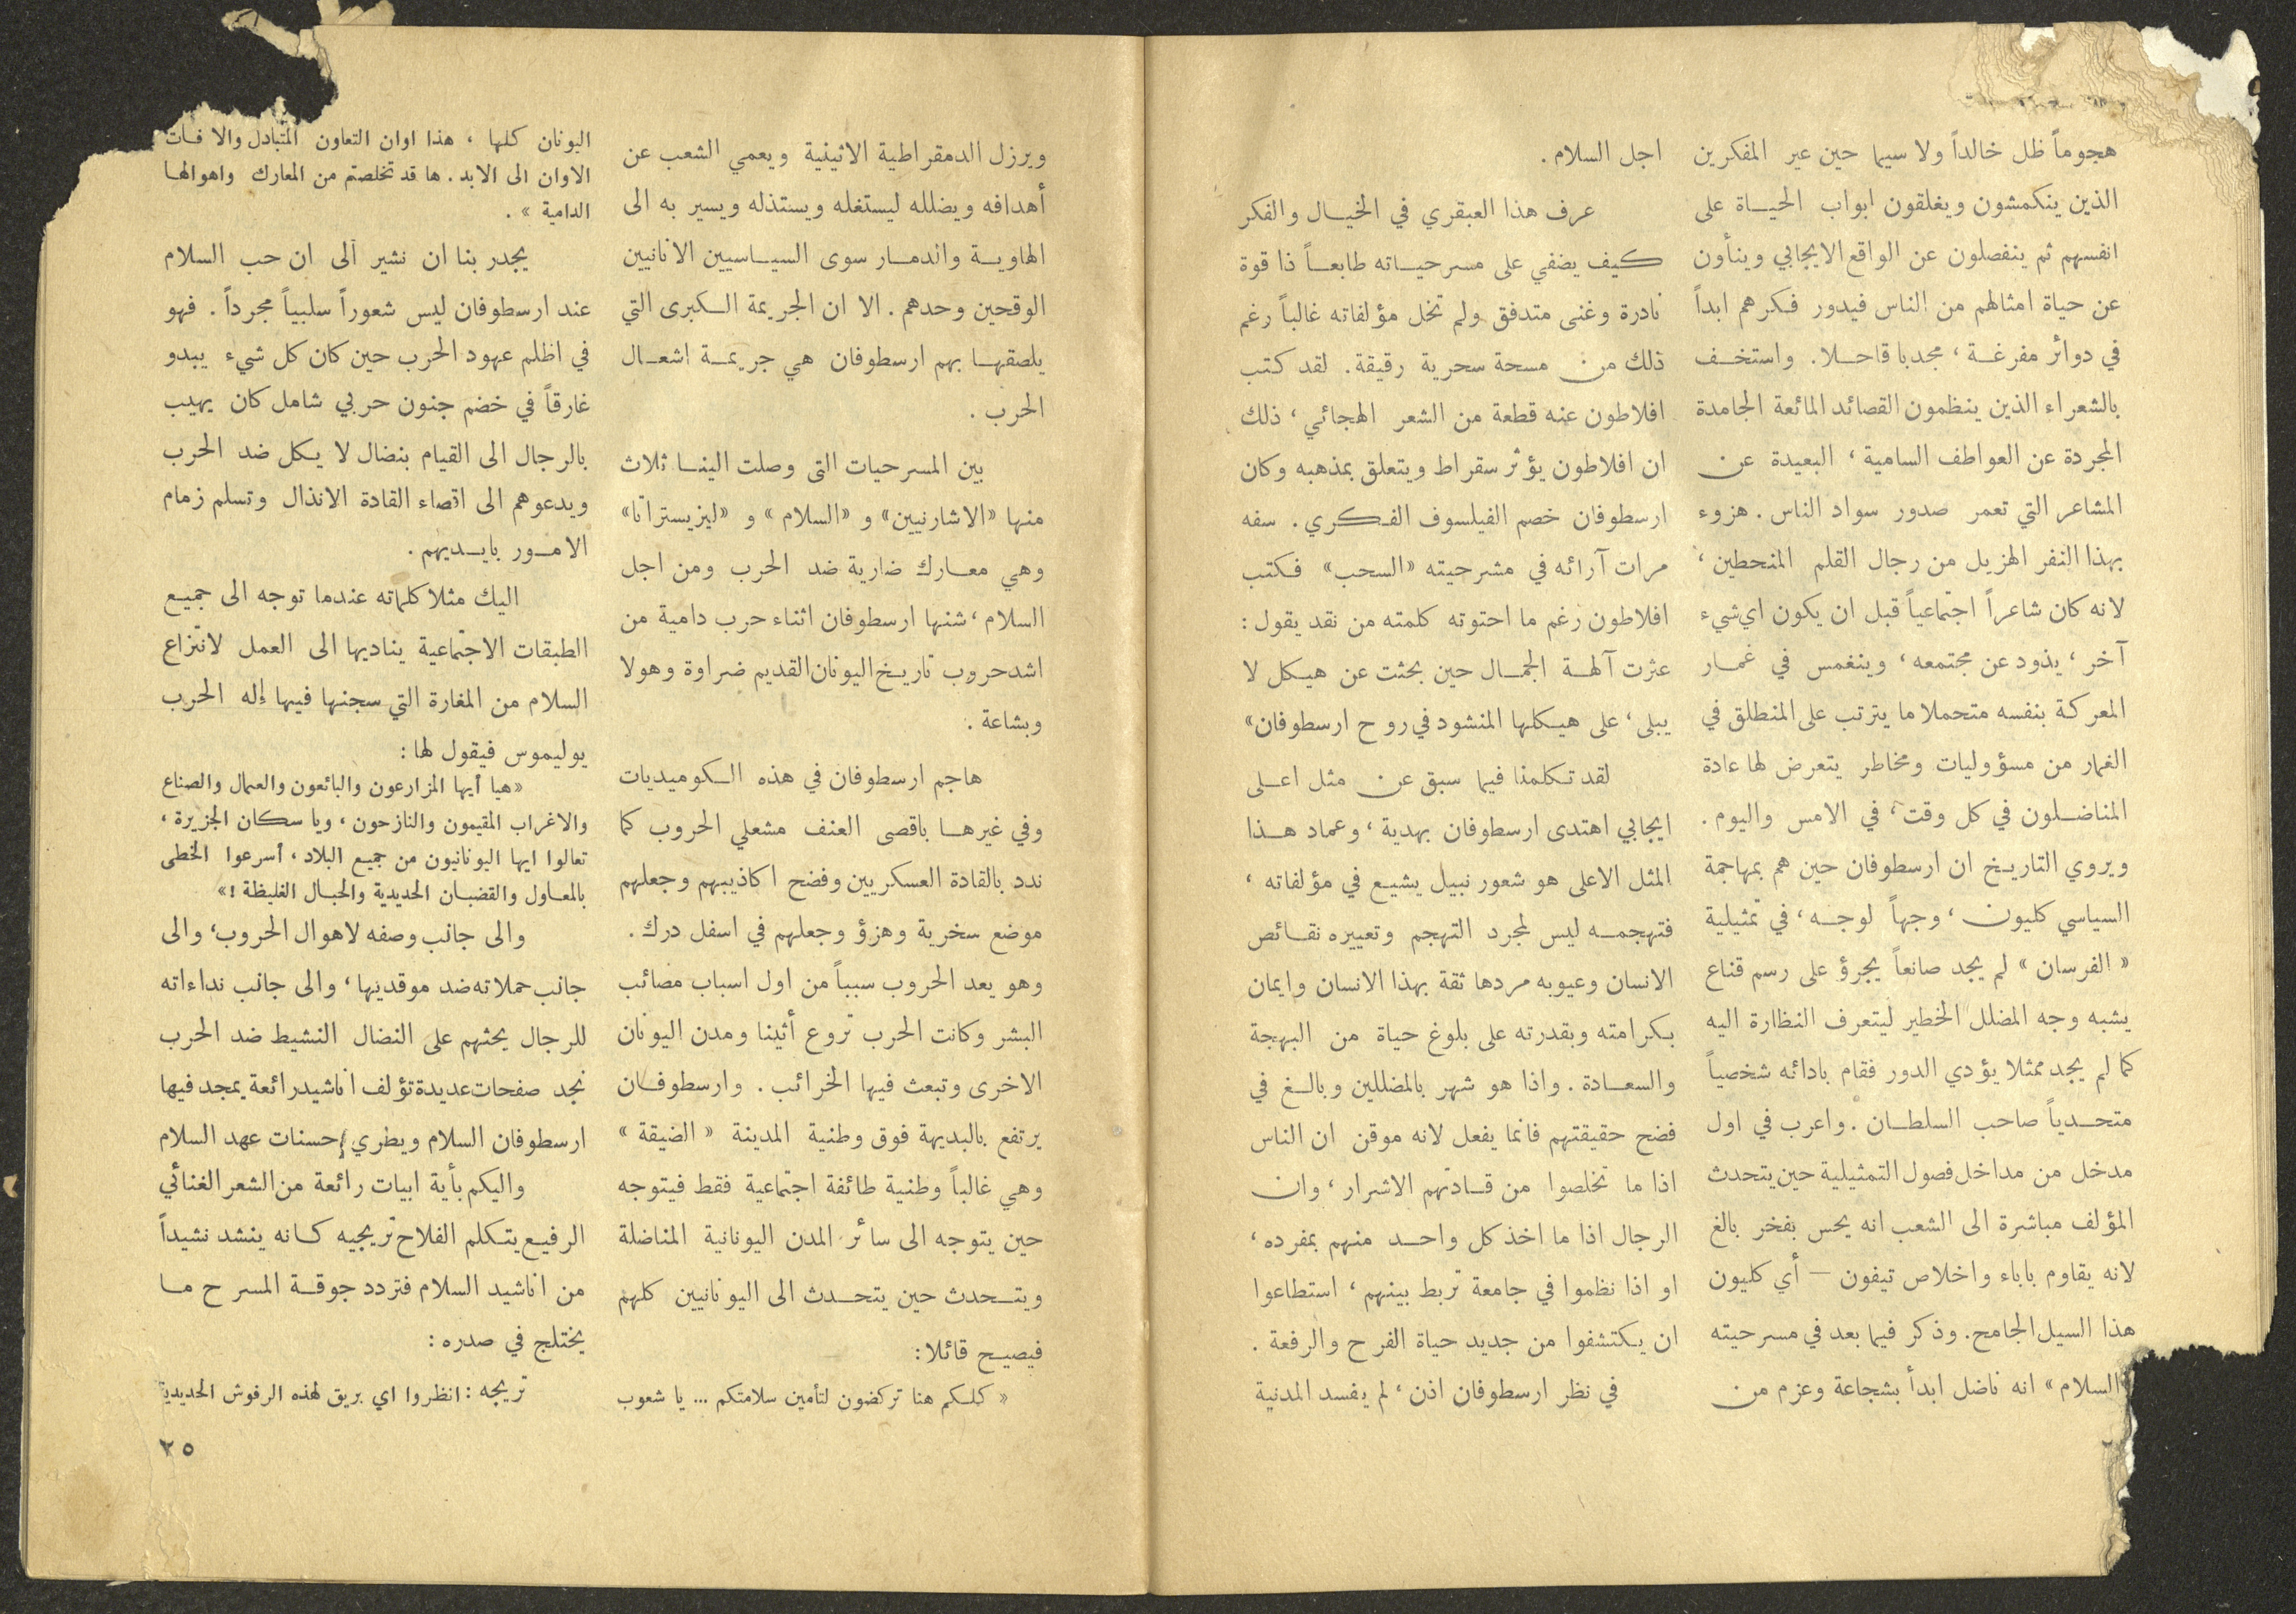 هجوماً ظل خالداً ولا سيما حين عير المفكرين
الذين ينكمشون ويغلقون ابواب الحياة على
انفسهم ثم ينفصلون عن الواقع الايجابي وينأون
عن حياة امثالهم من الناس فيدور فكرهم ابداً
في دوائر مفرغة ، مجدبا قاحلا . واستخف
بالشعراء الذين ينظمون القصائد المائعة الجامدة
المجردة عن العواطف السامية ، البعيدة عن
المشاعر التي تعمر صدور سواد الناس . هزوء
بهذا النفر الهزيل من رجال القلم المنحطين ،
لانه كان شاعراً اجتماعياً قبل ان يكون اي شيء
آخر ، يذود عن مجتمعه ، وينغمس في غمار
المعركة بنفسه متحملا ما يترتب على المنطلق في
الغمار من مسؤوليات ومخاطر يتعرض لها عادة
المناضلون في كل وقت ، في الامس واليوم .
ويروي التاريخ ان ارسطوفان حين هم بمهاجمة
السياسي كليون ، وجهاً لوجه ، في تمثيلية
« الفرسان » لم يجد صانعاً يجرؤ على رسم قناع
يشبه وجه المضلل الخطير ليتعرف النظارة اليه
كما لم يجد ممثلا يؤدي الدور فقام بادائه شخصياً
متحدياً صاحب السلطان . واعرب في اول
مدخل من مداخل فصول التمثيلية حين يتحدث
المؤلف مباشرة الى الشعب انه يحس بفخر بالغ
لانه يقاوم باباء واخلاص تيفون — أي كليون
هذا السيل الجامح . وذكر فيما بعد في مسرحيته
«السلام» انه ناضل ابدأ بشجاعة وعزم من
اجل السلام .
عرف هذا العبقري في الخيال والفكر
كيف يضفي على مسرحياته طابعاً ذا قوة
نادرة وغنى متدفق ولم تخل مؤلفاته غالباً رغم
ذلك من مسحة سحرية رقيقة . لقد كتب
افلاطون عنه قطعة من الشعر الهجائي ، ذلك
ان افلاطون يؤثر سقراط ويتعلق بمذهبه وكان
ارسطوفان خصم الفيلسوف الفكري . سفه
مرات آرائه في مشرحيته «السحب» فكتب
افلاطون رغم ما احتوته كلمته من نقد يقول :
عثرت آلهة الجمال حين بحثت عن هيكل لا
يبلى ، على هيكلها المنشود في روح ارسطوفان»
لقد تكلمنا فيما سبق عن مثل اعلى
ايجابي اهتدى ارسطوفان بهدية ، وعماد هذا
المثل الاعلى هو شعور نبيل يشيع في مؤلفاته ،
فتهجمه ليس لمجرد التهجم وتعييره نقائص
الانسان وعيوبه مردها ثقة بهذا الانسان وايمان
بكرامته وبقدرته على بلوغ حياة من البهجة
والسعادة . واذا هو شهر بالمضللين وبالغ في
فضح حقيقتهم فانما يفعل لانه موقن ان الناس
اذا ما تخلصوا من قادتهم الاشرار ، وان
الرجال اذا ما اخذ كل واحد منهم بمفرده ،
او اذا نظموا في جامعة تربط بينهم ، استطاعوا
ان يكتشفوا من جديد حياة الفرح والرفعة .
في نظر ارسطوفان اذن ، لم يفسد المدنية
ويرزل الدمقراطية الاثينية ويعمي الشعب عن
أهدافه ويضلله ليستغله ويستذله ويسير به الى
الهاوية والدمار سوى السياسيين الانانيين
الوقحين وحدهم . الا ان الجريمة الكبرى التي
يلصقها بهم ارسطوفان هي جريمة اشعال
الحرب .
بين المسرحيات التى وصلت الينا ثلاث
منها «الاشارنيين» و «السلام» و «ليزيستراتا»
وهي معارك ضارية ضد الحرب ومن اجل
السلام ، شنها ارسطوفان اثناء حرب دامية من
اشد حروب تاريخ اليونان القديم ضراوة وهولا
وبشاعة .
هاجم ارسطوفان في هذه الكوميديات
وفي غيرها باقصى العنف مشعلي الحروب كما
ندد بالقادة العسكريين وفضح اكاذيبهم وجعلهم
موضع سخرية وهزؤ وجعلهم في اسفل درك .
وهو يعد الحروب سبباً من اول اسباب مصائب
البشر وكانت الحرب تروع أثينا ومدن اليونان
الاخرى وتبعث فيها الخرائب . وارسطوفان
يرتفع بالبديهة فوق وطنية المدينة « الضيقة »
وهي غالباً وطنية طائفة اجتماعية فقط فيتوجه
حين يتوجه الى سائر المدن اليونانية المناضلة
ويتحدث حين يتحدث الى اليونانيين كلهم
فيصيح قائلا :
« كلكم هنا تركضون لتأمين سلامتكم ... يا شعوب
اليونان كلها ، هذا اوان التعاون المتبادل والا فات
الاوان الى الابد . ها قد تخلصتم من المعارك واهوالها
الدامية » .
يجدر بنا ان نشير الى ان حب السلام
عند ارسطوفان ليس شعوراً سلبياً مجرداً . فهو
في اظلم عهود الحرب حين كان كل شيء يبدو
غارقاً في خضم جنون حربي شامل كان يهيب
بالرجال الى القيام بنضال لا يكل ضد الحرب
ويدعوهم الى اقصاء القادة الانذال وتسلم زمام
الامور بايديهم .
اليك مثلا كلماته عندما توجه الى جميع
الطبقات الاجتماعية يناديها الى العمل لانتزاع
السلام من المغارة التي سجنها فيها إله الحرب
يوليموس فيقول لها :
«هيا أيها المزارعون والبائعون والعمال والصناع
والاغراب المقيمون والنازحون ، ويا سكان الجزيرة ،
تعالوا ايها اليونانيون من جميع البلاد ، أسرعوا الخطى
بالمعاول والقضبان الحديدية والحبال الغليظة !»
والى جانب وصفه لاهوال الحروب ، والى
جانب حملاته ضد موقديها ، والى جانب نداءاته
للرجال يحثهم على النضال النشيط ضد الحرب
نجد صفحات عديدة تؤلف اناشيد رائعة يمجد فيها
ارسطوفان السلام ويطري حسنات عهد السلام
واليكم بأية ابيات رائعة من الشعر الغنائي
الرفيع يتكلم الفلاح تريجيه كانه ينشد نشيداً
من اناشيد السلام فتردد جوقة المسرح ما
يختلج في صدره :
تريجه : انظروا اي بريق لهذه الرفوش الحديدية
٢٥